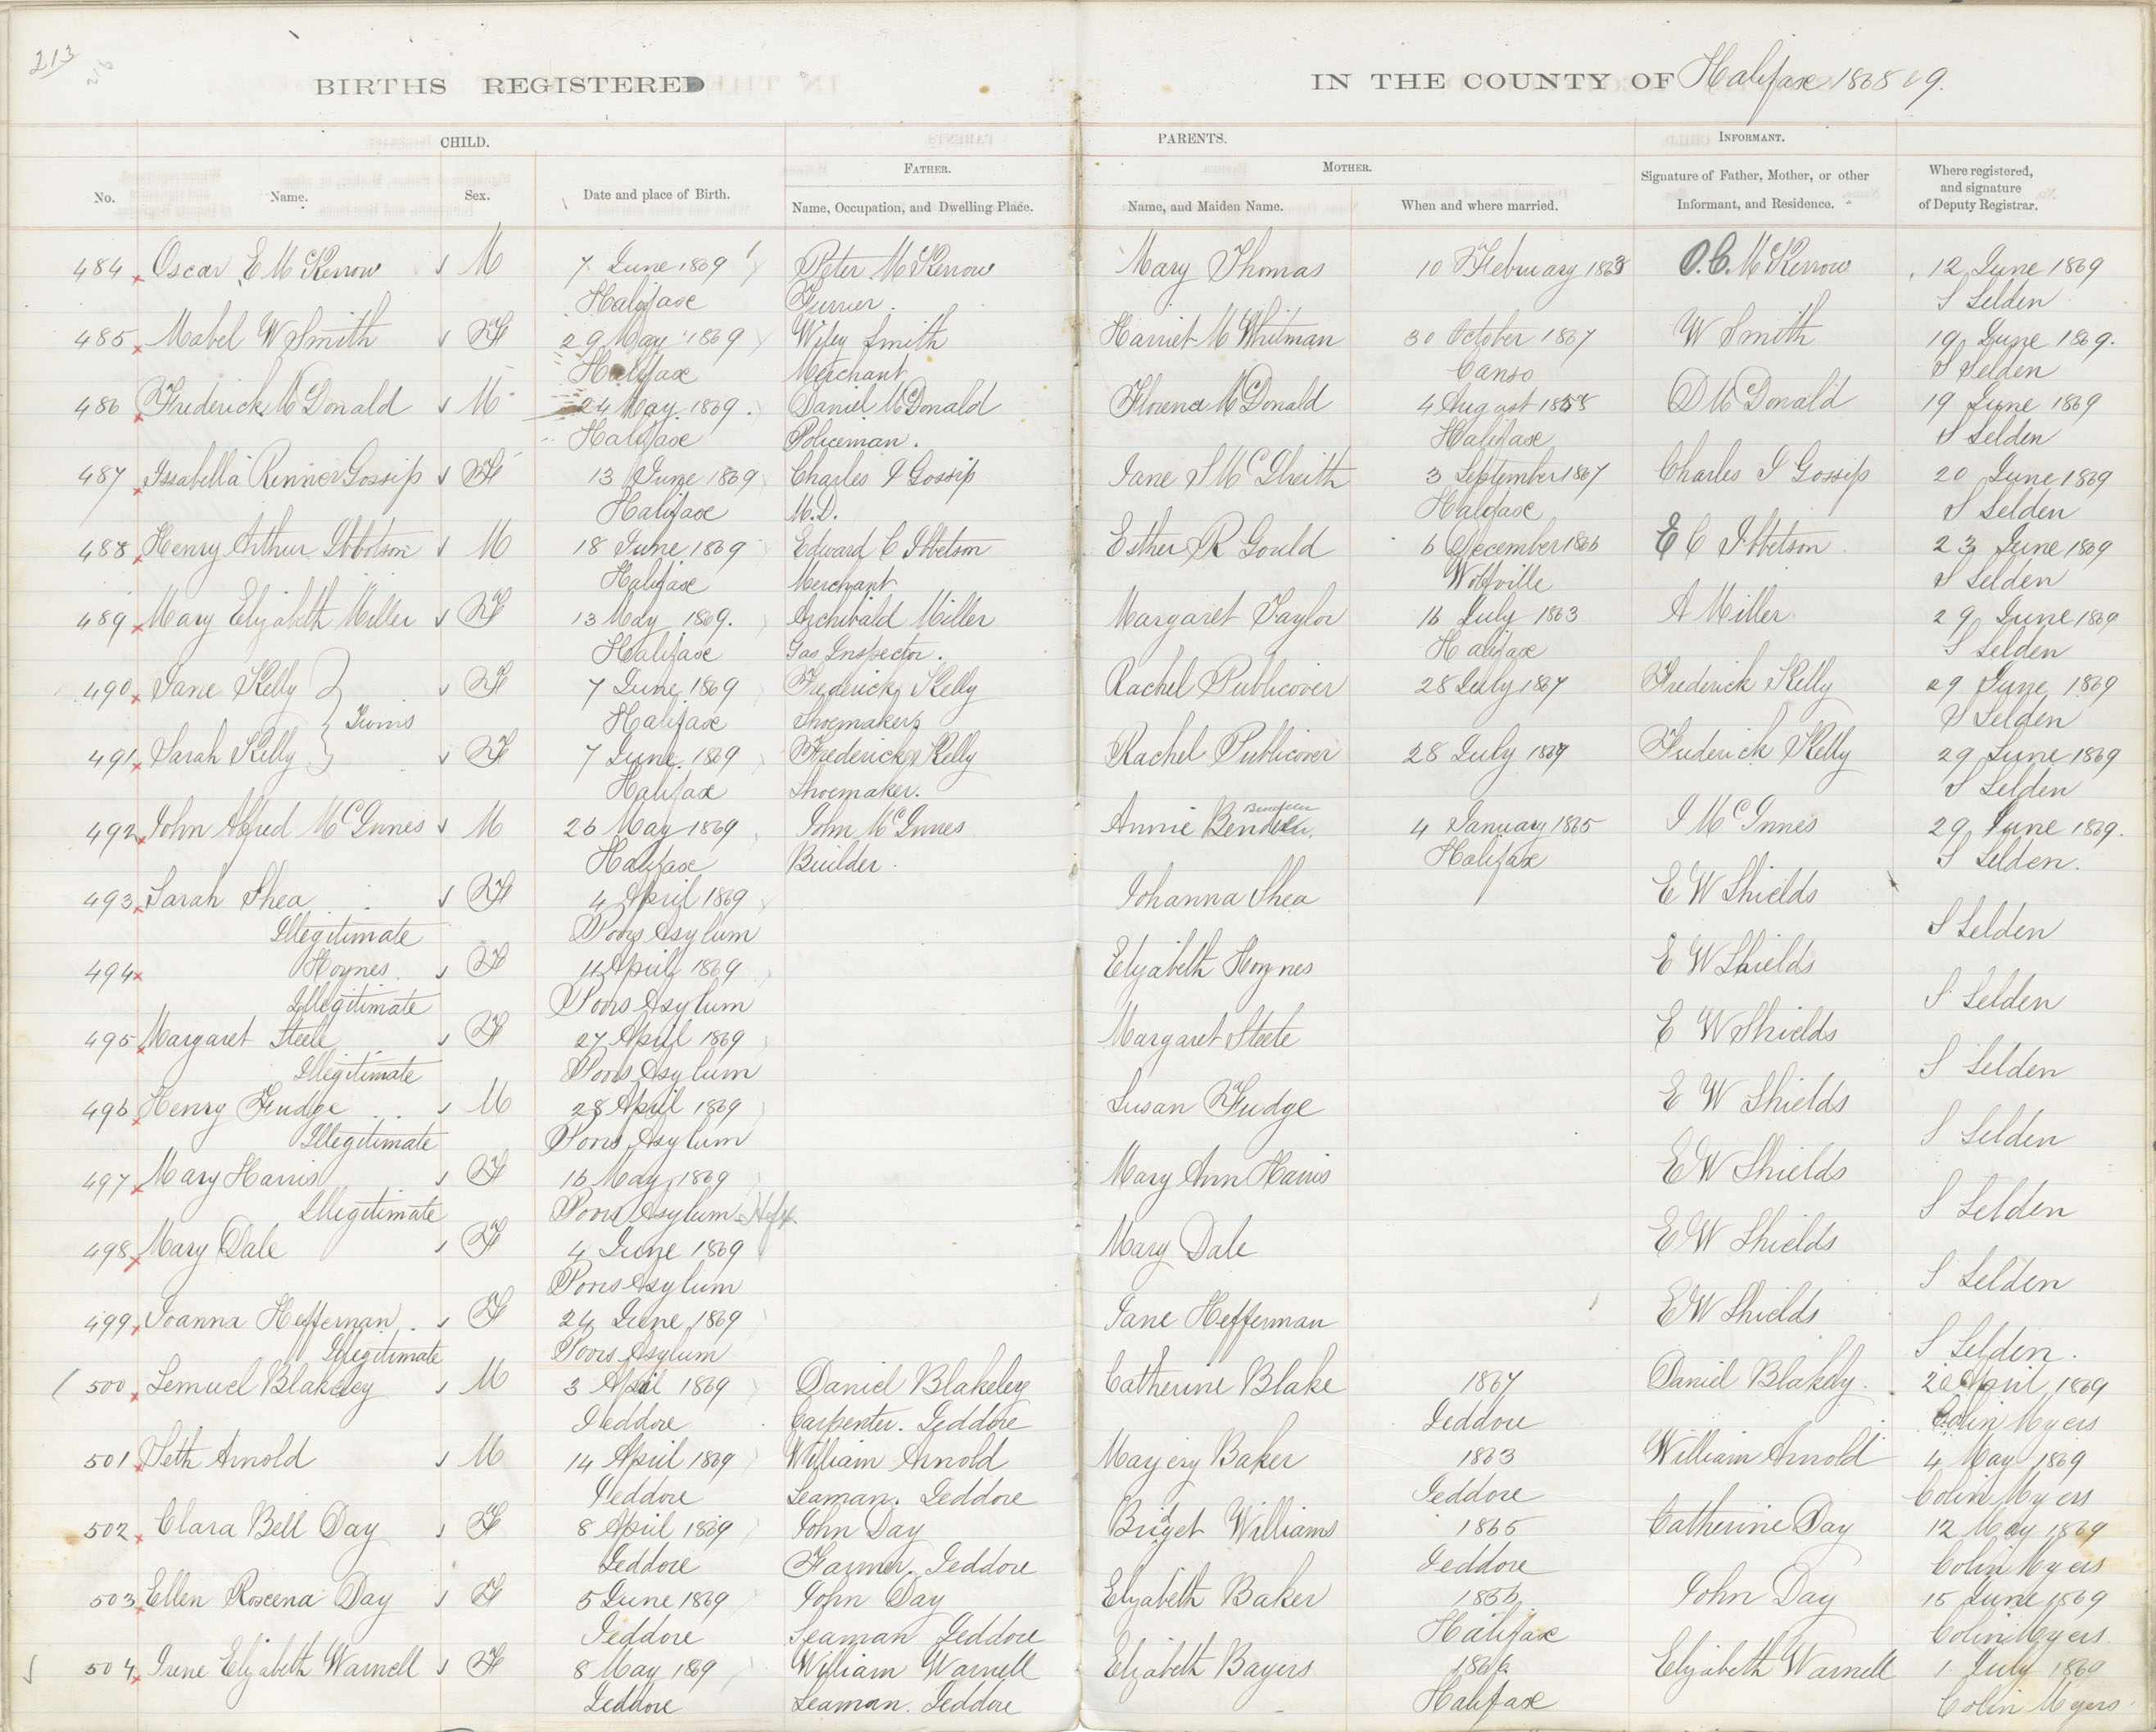 213
BIRTHS REGISTERED IN THE COUNTY OF Halifax 1868 69.
CHILD. PARENTS. INFORMANT.
FATHER. MOTHER.
No. Name. Sex. Date and place of Birth. Name, Occupation, and Dwelling Place. Name, and Maiden Name. When and where married. Signature of Father, Mother, or other Informant, and Residence. Where registered, and signature of Deputy Registrar.
484 Oscar E McKerrow M 7 June 1869 Peter McKerrow Mary Thomas 10 February 1863 McKerrow 12 June 1869
Halifax Furrier. S Selden
485 Mabel W Smith F 29 May 1869 Wiley Smith Harriet M Whitman 30 October 1867 W Smith 19 June 1869.
Halifax Merchant Canso S Selden
486 Frederick McDonald M 24 May 1869. Daniel McDonald Florence McDonald 4 August 1858 D McDonald 19 June 1869
Halifax Policeman. Halifax S Selden
487 Issabella Renner Gossip F 13 June 1869 Charles I Gossip Jane S 3 September 1867 Charles I Gossip 20 June 1869
Halifax M.D. Halifax S Selden
488 Henry Arthur Ibbotson M 18 June 1869 Edward C Ibbetson Esther R Gould 6 December 1866 E C Ibbetson 23 June 1869
Halifax Merchant Wolfville S Selden
489 Mary Elizabeth Miller F 13 May 1869. Archibald Miller Margaret Taylor 16 July 1863 A Miller 29 June 1869
Halifax Gas Inspector. Halifax S Selden
490 Jane Kelly F 7 June 1869 Frederick Kelly Rachel Publicover 28 July 1867 Frederick Kelly 29 June 1869
Twins Halifax Shoemaker S Selden
491 Sarah Kelly F 7 June 1869 Frederick Kelly Rachel Publicover 28 July 1869 Frederick Kelly 29 June 1869
Halifax Shoemaker. S Selden
492 John Alfred McInnes M 26 May 1869 John McInnes Annie 4 January 1865 J McInnes 29 June 1869.
Halifax Builder. Halifax S Selden.
493 Sarah Shea F 4 April 1869 Johanna Shea E W Shields
Illegitimate Poors Asylum S Selden
494 Hoynes F 11 April 1869 Elizabeth Hoynes E W Shields
Illegitimate Poors Asylum S Selden
495 Margaret Steele F 27 April 1869 Margaret Steele E W Shields
Illegitimate Poors Asylum S Selden
496 Henry Fudge M 28 April 1869 Susan Fudge E W Shields
Illegitimate Poors Asylum S Selden
497 Mary Harris F 16 May 1869 Mary Ann Harris E W Shields
Illegitimate Poors Asylum Hfx. S Selden
498 Mary Dale F 4 June 1869 Mary Dale E W Shields
Poors Asylum S Selden
499 Joanna Heffernan F 24 June 1869 Jane Hefferman E W Shields
Illegitimate Poors Asylum S Selden.
500 Lemuel Blakeley M 3 April 1869 Daniel Blakeley Catherine Blake 1867 Daniel Blakely. 20 April 1869
Jeddore Carpenter. Jeddore Jeddore Colin Myers
501 Seth Arnold M 14 April 1869 William Arnold Marjery Baker 1863 William Arnold 4 May 1869
Jeddore Seaman. Jeddore Jeddore Colin Myers
502 Clara Bell Day F 8 April 1869 John Day Bridget Williams 1865 Catherine Day 12 May 1869
Jeddore Farmer. Jeddore Jeddore Colin Myers
503 Ellen Roseena Day F 5 June 1869 John Day Elizabeth Baker 1866 John Day 15 June 1869
Jeddore Seaman Jeddore Halifax Colin Myers
504 Irene Elizabeth Warnell F 8 May 1869 William Warnell Elizabeth Bayers Elizabeth Warnell 1 July 1869
Jeddore Seaman. Jeddore Halifax Colin Myers